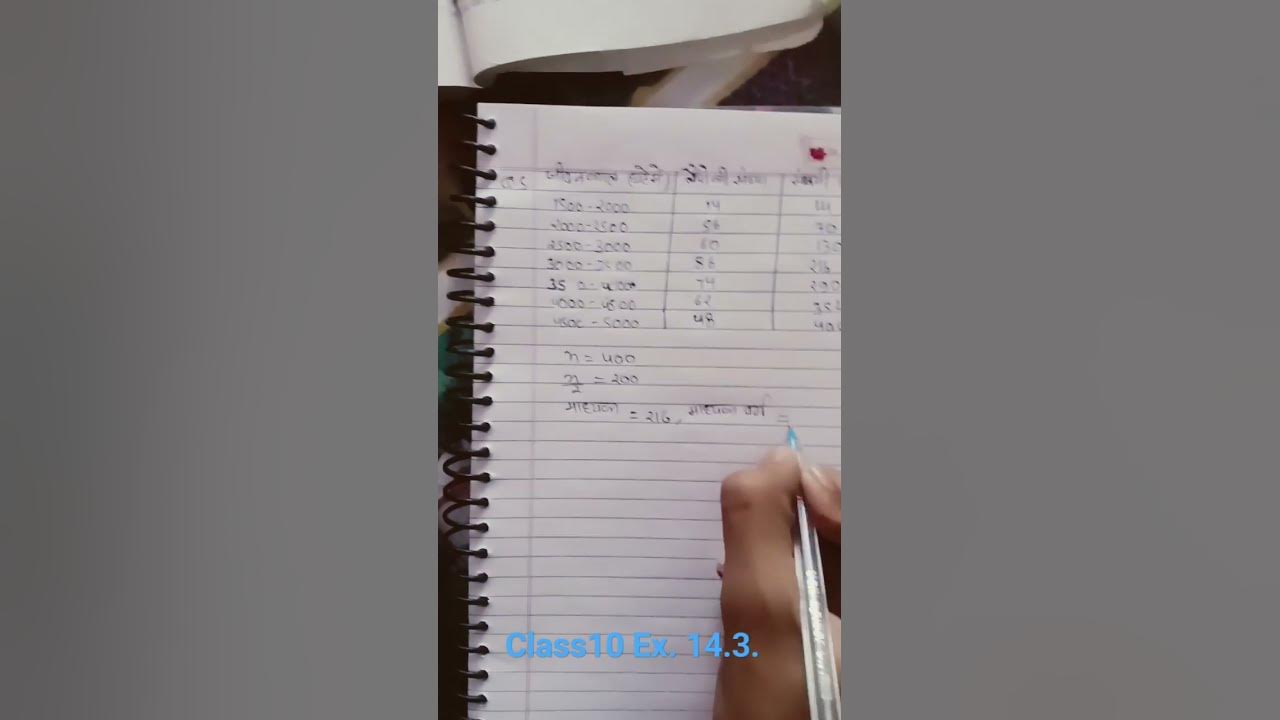 जीवनकाल (घंटे में) लैंपों की संख्या संचयी
1500-2000 14 14
2000-2500 56 70
2500-3000 60 130
3000-3500 86 216
3500-4000 74 290
4000-4500 62 352
4500-5000 48 400
n = 400
n/2 = 200
माध्यक = 216, माध्यक वर्ग =
Class10 Ex. 14.3.